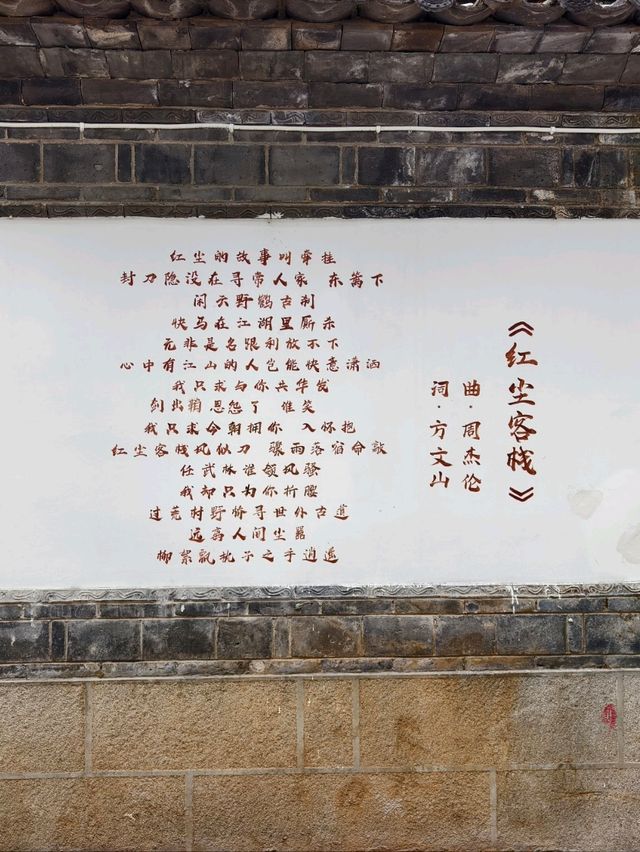 《红尘客栈》
曲·周杰伦
词·方文山
红尘的故事叫牵挂
封刀隐没在寻常人家 东篱下
闲云野鹤古刹
快马在江湖里厮杀
无非是名跟利放不下
心中有江山的人岂能快意潇洒
我只求与你共华发
剑出鞘 恩怨了 谁笑
我只求今朝拥你 入怀抱
红尘客栈风似刀 骤雨落宿命敲
任武林谁领风骚
我却只为你折腰
过荒村野桥寻世外古道
远离人间尘嚣
柳絮飘执子之手逍遥